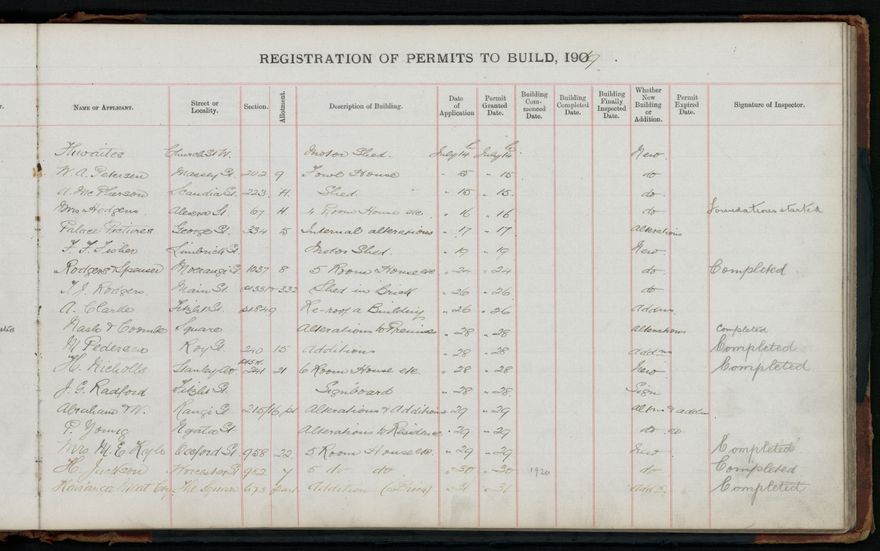 REGISTRATION OF PERMITS TO BUILD, 1907.
NAME OF APPLICANT. Street or Locality. Section. Allotment. Description of Building. Date of Application Permit Granted Date. Building Commenced Date. Building Completed Date. Building Finally Inspected Date. Whether New Building or Addition. Permit Expired Date. Signature of Inspector.
Church St W. Motor Shed. July 14 July 14 New.
W. A. Petersen Massey St 202 9 House " 15 " 15 do
A. McPherson Scandia St 223 H. Shed. " 15 " 15. do
Mrs Hodgens. St. 67 H 4 Room House etc. " 16 " 16 do Foundations started
Palace Pictures George St. 334 5 Internal alterations " 17 " 17 alterations
F. F. Fisher Limbrick St Motor Shed. " 19 " 19 New.
Rodgers & Spenser St 1057 8 5 Room House etc " 24 " 24 do Completed.
T. J. Rodgers. Main St. Shed in Brick " 26 " 26. do
A. Clarke Fitzht St. Re-roof a Building " 26 " 26 Addn
Nash & Coombe Square Alterations to Premises " 28 " 28 alterations Completed
M. Pedersen Roy St 240 15 Additions " 28 " 28 addn Completed
H. Nicholls Stanley Av 241 21 6 Room House etc. " 28 " 28 New. Completed
J. G. Radford Fitzht St. Signboard " 28 " 28. Sign
Abraham & W. Rangi St Alterations & Additions " 29 " 29 Altn & addn
P. Young Egota St Alterations to Residence " 29 " 29 do do
Mrs M. E. Oxford St. 958 22 5 Room House etc. " 29 " 29 New Completed
H. Jackson Worcester St 952 7 5 do do " 30 " 30 1920 do Completed
Meat Coy The Square 673 part Addition " 31 " 31 Addn. Completed